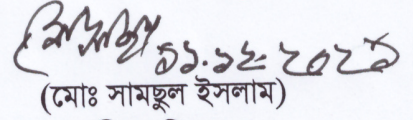 ১১.১২.২০২১
(মোঃ সামছুল ইসলাম)